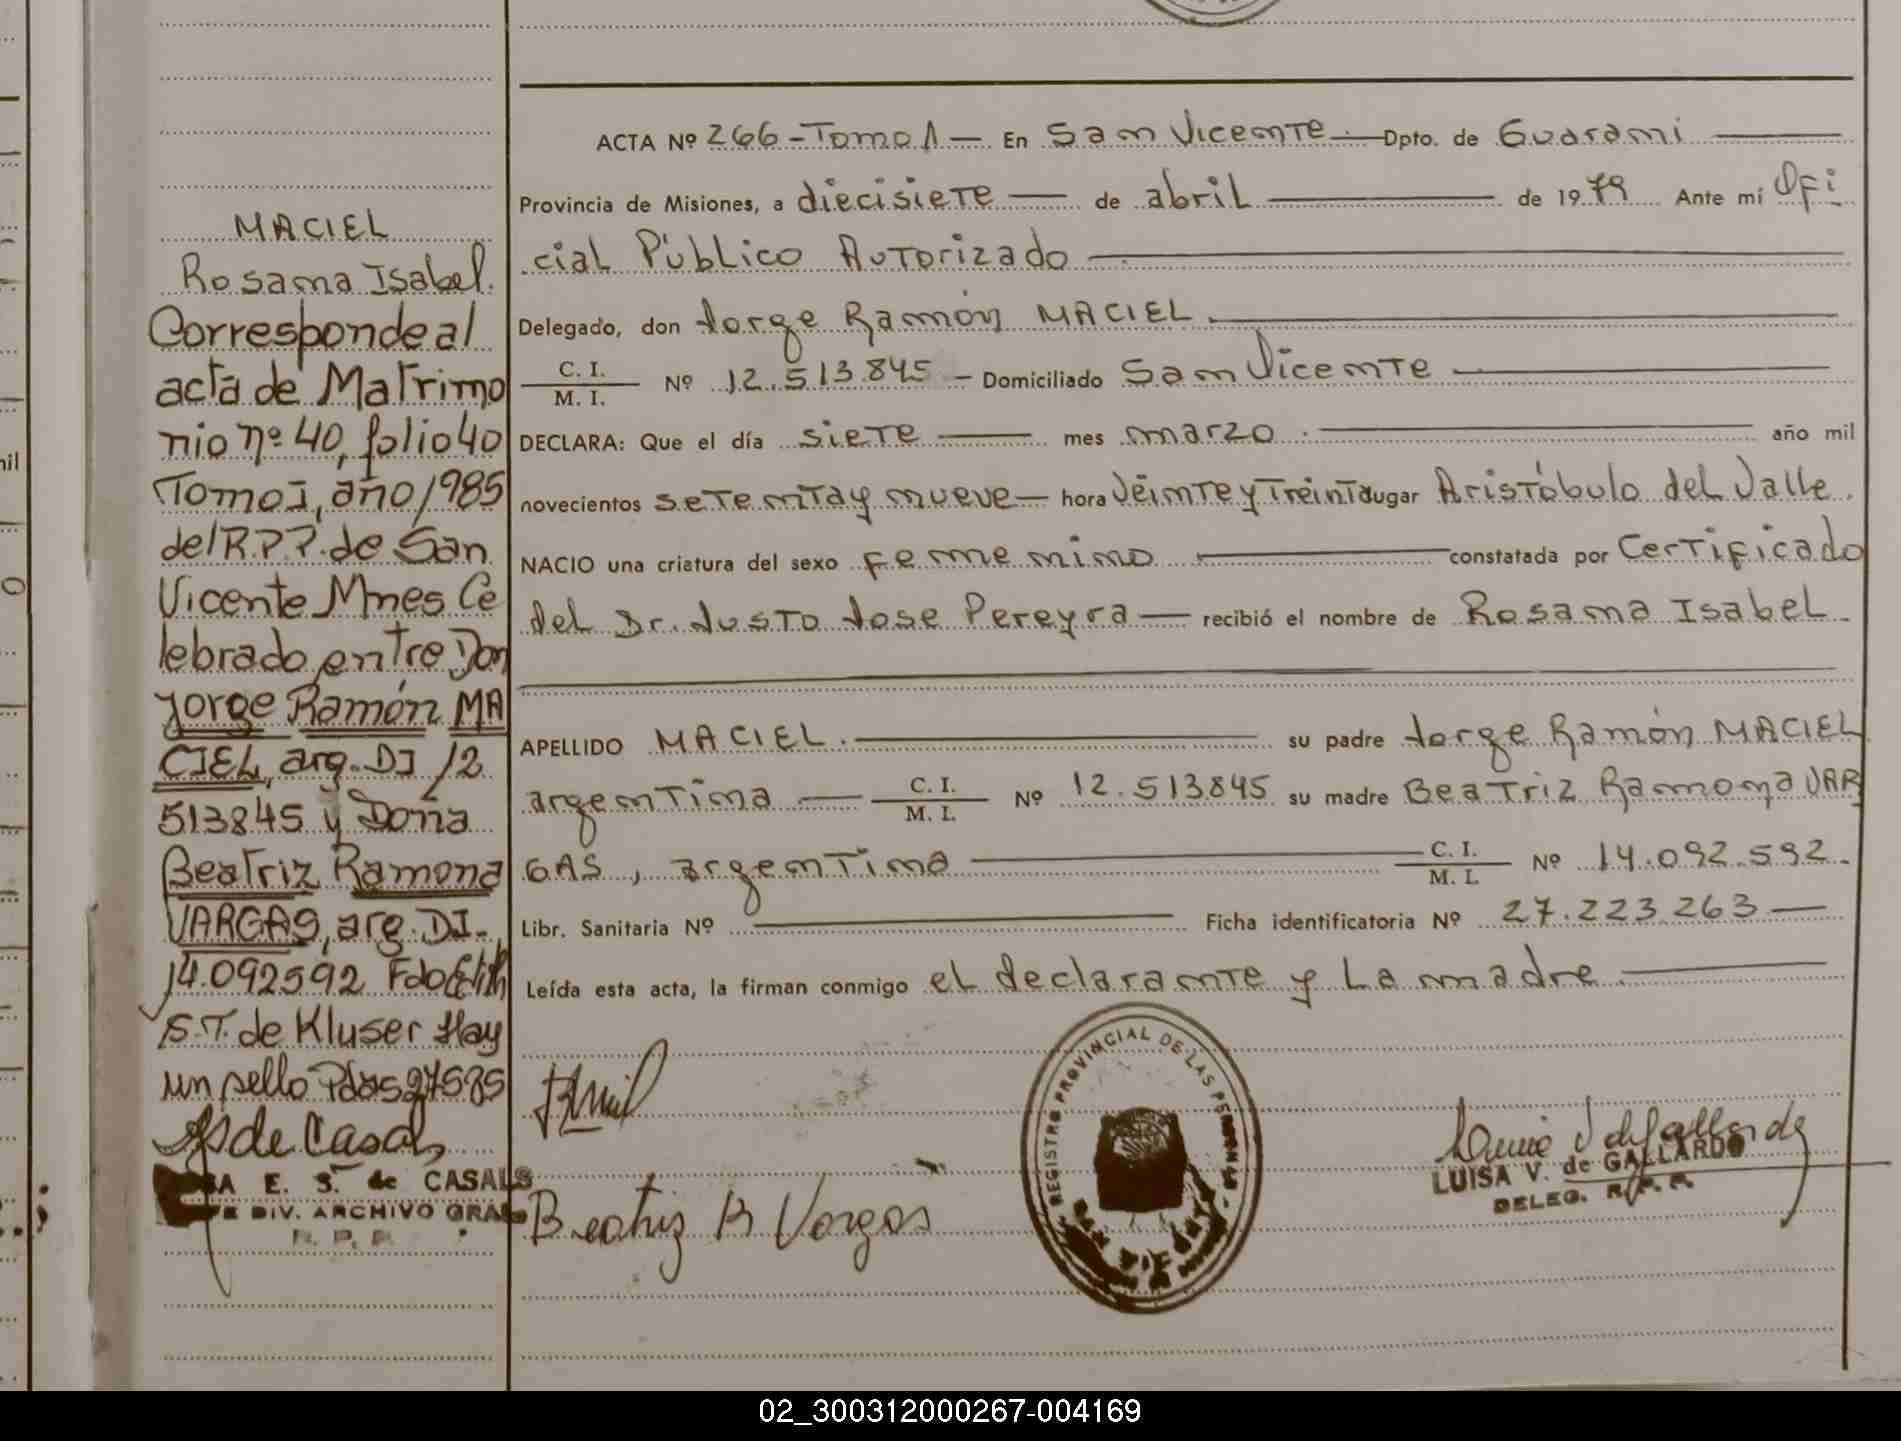 MACIEL
Rosana Isabel.
Corresponde al
acta de Matrimo
nio nº 40, folio 40
Tomo I, año 1985
del R.P.P. de San
Vicente Mnes Ce
lebrado entre Don
Jorge Ramón MA
CIEL, arg. DI 12
513845 y Doña
Beatriz Ramona
VARGAS, arg. DI.
14.092592 Fdo Edith
S.T. de Kluser Hay
un sello Pdas 27585
de Casals
A E. S. de CASALS
DIV. ARCHIVO GRAL
R. P. P.
ACTA Nº 266 - Tomo 1 — En San Vicente. — Dpto. de Guaraní
Provincia de Misiones, a diecisiete — de abril — de 1979 Ante mí Ofi
cial Público Autorizado
Delegado, don Jorge Ramón MACIEL.
C. I. / M. I. Nº 12.513.845 - Domiciliado San Vicente
DECLARA: Que el día siete — mes marzo. — año mil
novecientos setenta y nueve — hora veinte y treinta lugar Aristóbulo del Valle.
NACIO una criatura del sexo femenino — constatada por Certificado
del Dr. Justo Jose Pereyra — recibió el nombre de Rosana Isabel
APELLIDO MACIEL. — su padre Jorge Ramón MACIEL
argentina — C. I. / M. I. Nº 12.513845 su madre Beatriz Ramona VAR
GAS, argentina — C. I. / M. I. Nº 14.092.592.
Libr. Sanitaria Nº — Ficha identificatoria Nº 27.223.263 —
Leída esta acta, la firman conmigo el declarante y la madre
REGISTRO PROVINCIAL DE LAS PERSONAS
Beatriz R Vargas
LUISA V. de GALLARDO
DELEG. R. P. P.
02_300312000267-004169